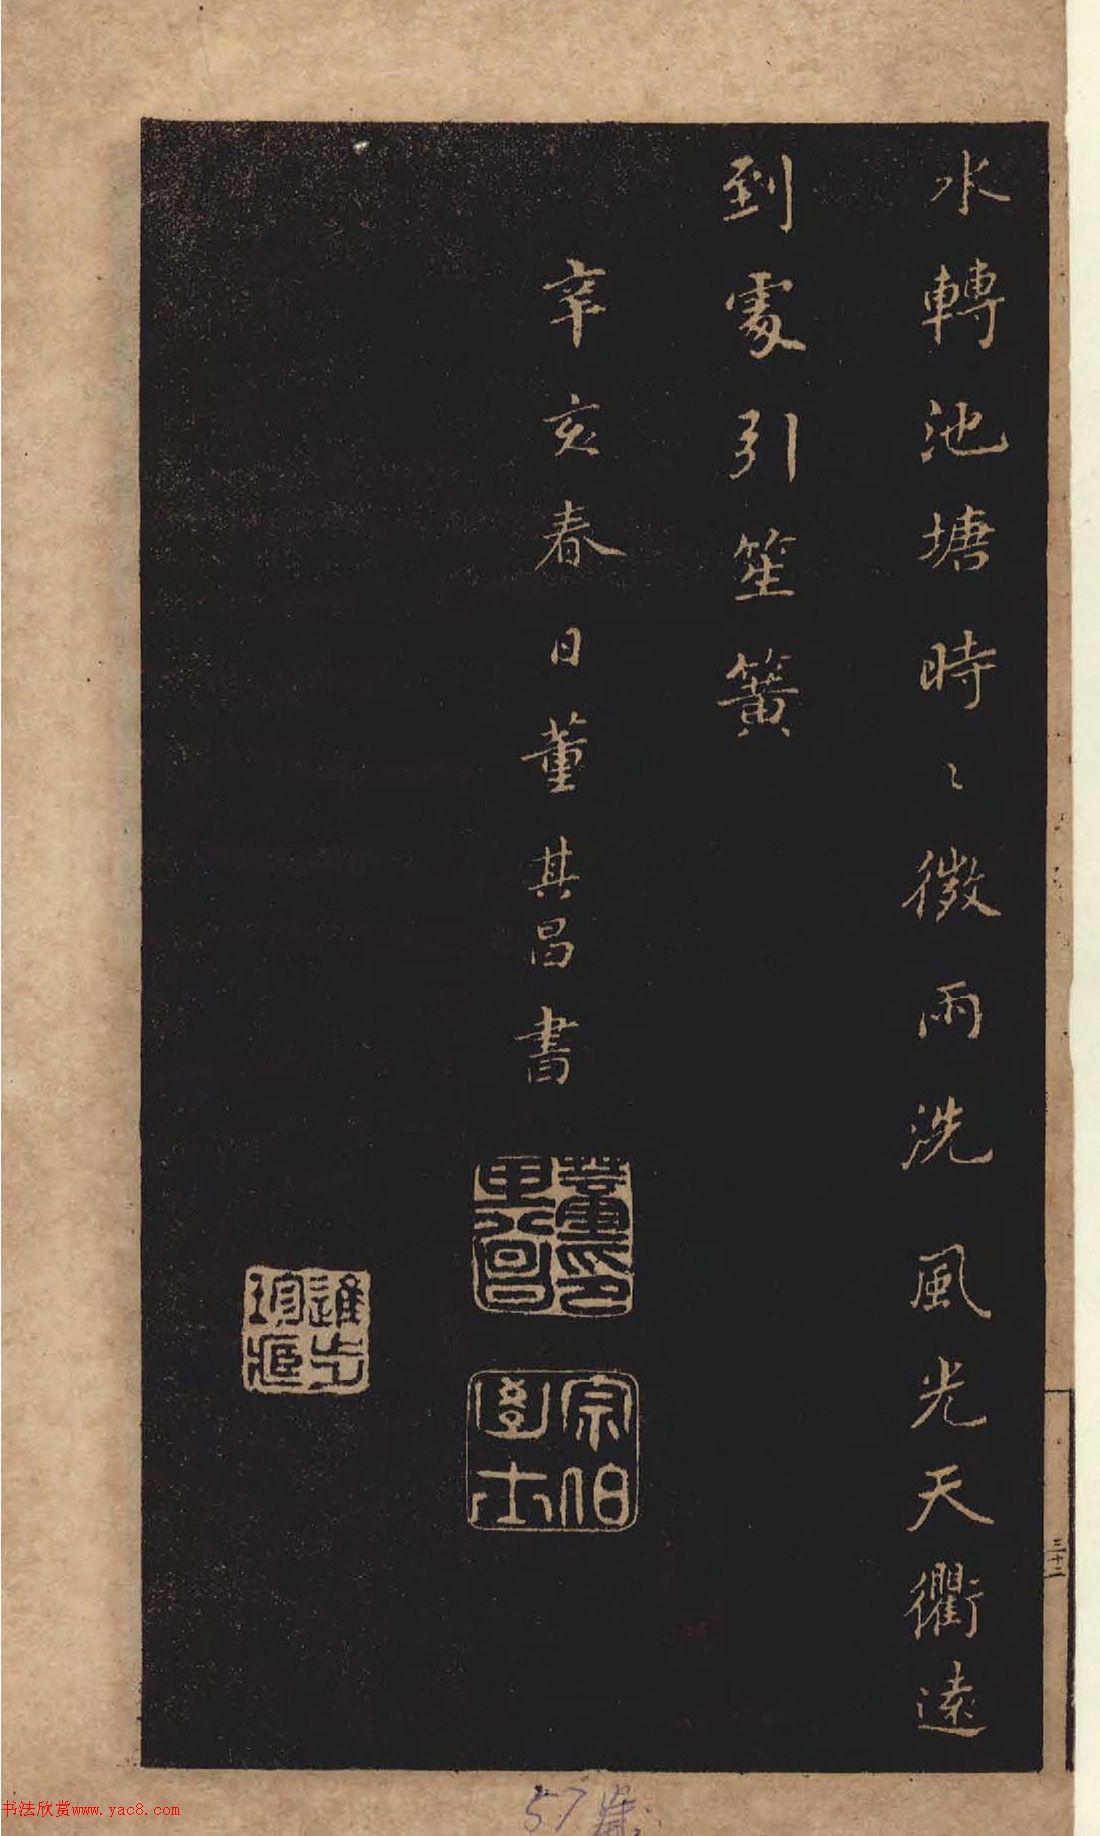 水轉池塘時〻微雨洗風光天衢遠
到處引笙簧
辛亥春日董其昌書
董其昌印
宗伯學士
珍藏
三十二
57歲
书法欣赏www.yac8.com